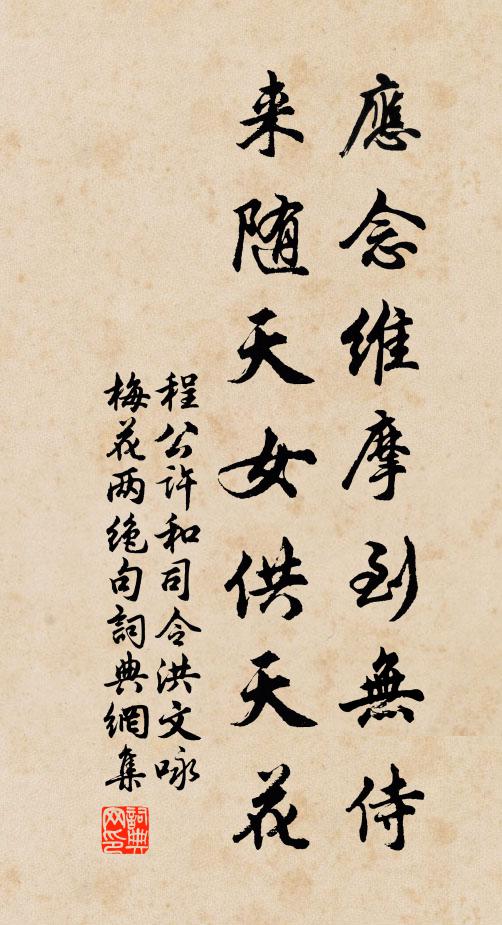 應念維摩到無侍
来随天女供天花
程公許和司令洪文咏
梅花两絶句詞典網集
詞典网印